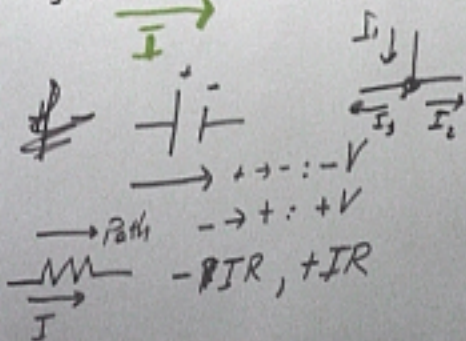 I
I₁
+ -
I₃ I₂
+ → - : -V
→ Path - → + : +V
-IR, +IR
I